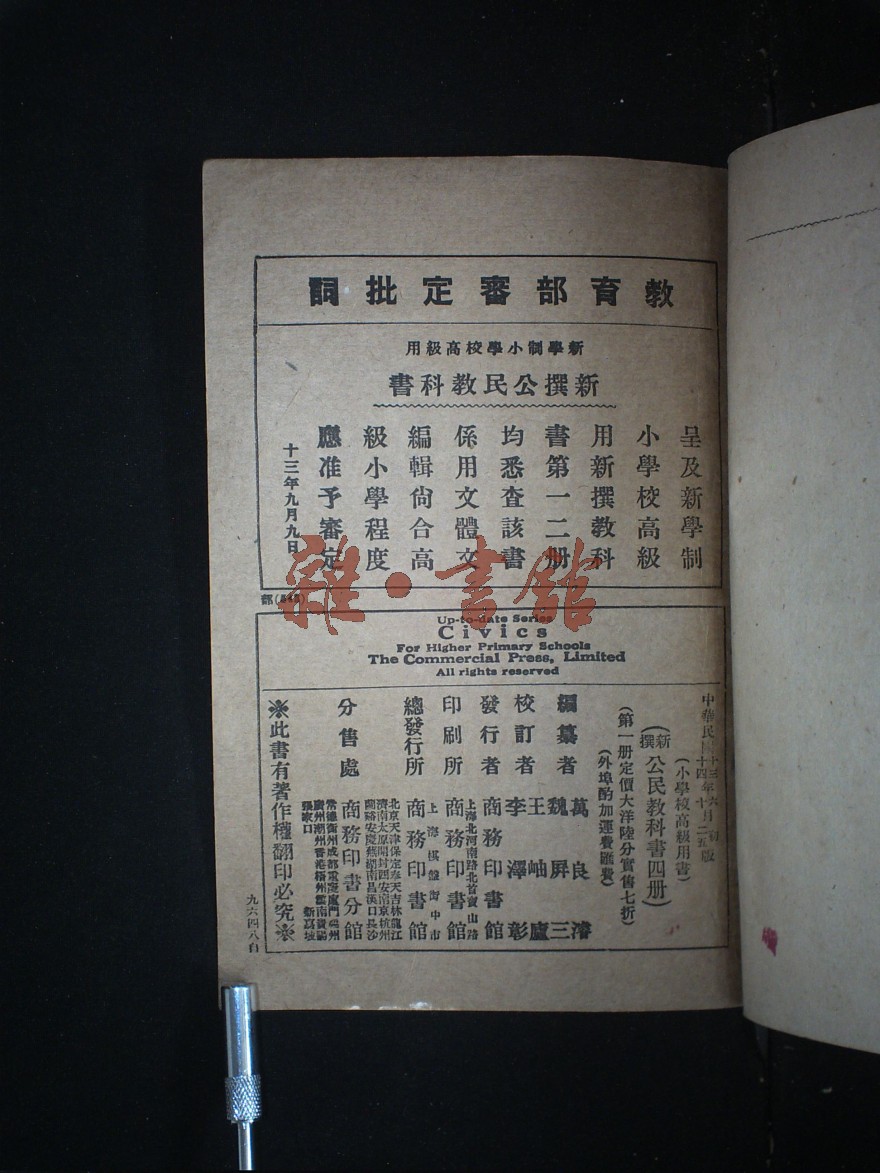 教育部審定批詞
新學制小學校高級用
新撰公民教科書
呈及新學制
小學校高級
用新撰教科
書第一二册
均悉查該書
係用文體文
編輯尙合高
級小學程度
應准予審定
十三年九月九日
部(545)
Up-to-date Series
Civics
For Higher Primary Schools
The Commercial Press, Limited
All rights reserved
中華民國十三年六月初版
十四年十二五版
(小學校高級用書)
(新撰公民教科書四册)
(第一册定價大洋陸分實售七折)
(外埠酌加運費匯費)
編纂者 萬良濬 魏屏三
校訂者 王岫廬 李澤彰
發行者 商務印書館
印刷所 上海北河南路北首寶山路 商務印書館
總發行所 上海棋盤街中市 商務印書館
分售處 商務印書分館
北京天津保定奉天吉林龍江
濟南太原開封西安南京杭州
蘭谿安慶蕪湖南昌漢口長沙
常德衡州成都重慶廈門福州
廣州潮州香港梧州雲南貴陽
張家口 新嘉坡
※此書有著作權翻印必究※
九六四八自
雜·書館